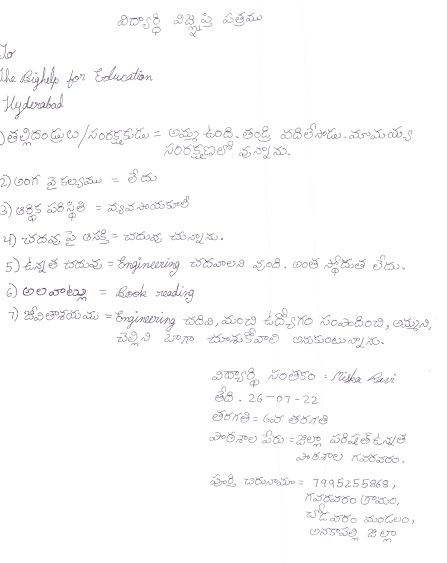 విద్యార్థి విజ్ఞప్తి పత్రము
To
The Bighelp for Education
Hyderabad
1) తల్లిదండ్రులు/సంరక్షకుడు = అమ్మ ఉంది. తండ్రి వదిలేసాడు. మామయ్య
సంరక్షణలో వున్నాను.
2) అంగ వైకల్యము = లేదు
3) ఆర్థిక పరిస్థితి = వ్యవసాయకూలీ
4) చదువు పై ఆసక్తి = చదువు చున్నాను.
5) ఉన్నత చదువు = Engineering చదవాలని వుంది. అంత స్థోమత లేదు.
6) అలవాట్లు = Book reading
7) జీవితాశయము = Engineering చదివి, మంచి ఉద్యోగం సంపాదించి, అమ్మని,
చెల్లిని బాగా చూసుకోవాలి అనుకుంటున్నాను.
విద్యార్థి సంతకం = Ravi
తేది. 26-07-22
తరగతి = 6వ తరగతి
పాఠశాల పేరు = జిల్లా పరిషత్ ఉన్నత
పాఠశాల గవరవరం.
పూర్తి చిరునామా = 7995255868,
గవరవరం గ్రామం,
చోడవరం మండలం,
అనకాపల్లి జిల్లా